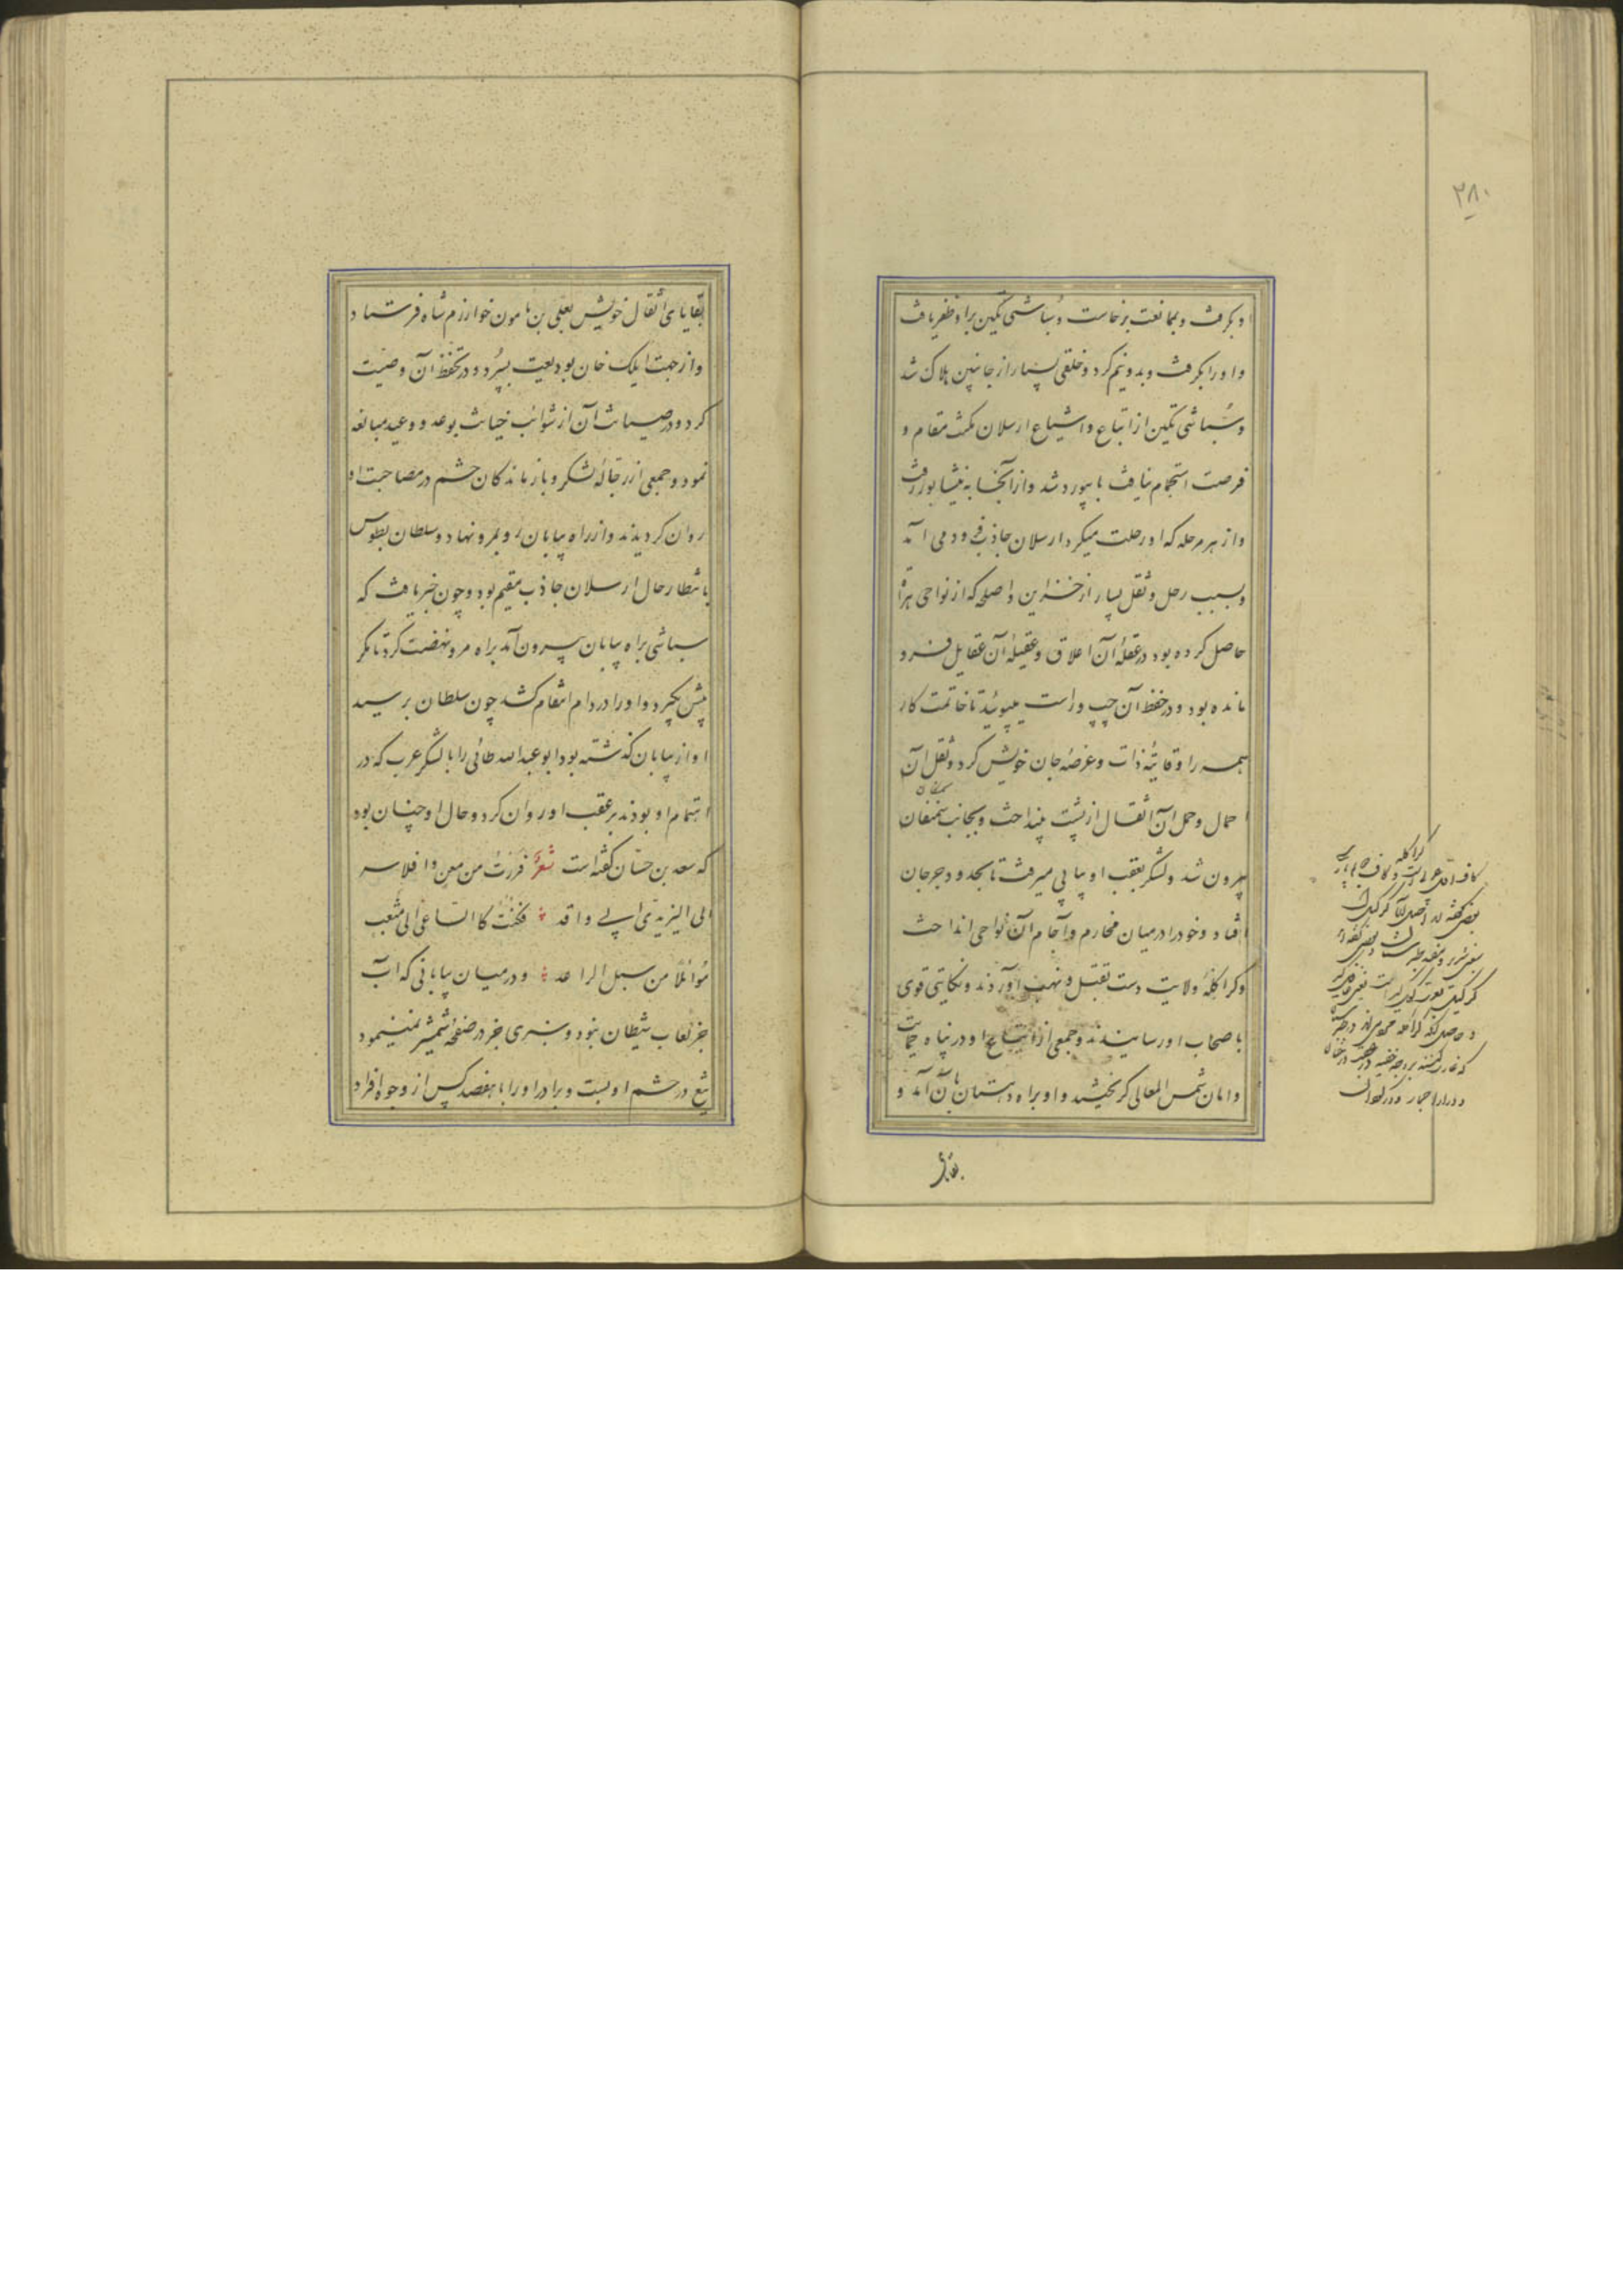 ۲۸۰
او بگرفت و بممانعت برخاست و سُباشی تگین براو ظفر یافت
و او را بگرفت و بدونیم کرد و خلقی بسیار از جانبین هلاک شد
و سُباشی تگین از اتباع و اشیاع ارسلان مکث مقام و
فرصت استجمام نیافت با بیورد شد و از آنجا به نیشابور رفت
و از هر مرحله که او رحلت میکرد ارسلان جاذب فرود می آمد
و بسبب رحل و ثقل بسیار از خزاین و اسلحه که از نواحی هراة
حاصل کرده بود در عقلهٔ آن اعلاق و عقیلهٔ آن عقایل فرو
مانده بود و در حفظ آن چپ و راست میپوئید تا خاتمت کار
همه را وقایهٔ ذات و عرضهٔ جان خویش کرد و ثقل آن
احمال و حمل آن اثقال از پشت بینداخت و بجانب سمنقان
بیرون شد و لشکر بعقب او پیاپی میرفت تا بحدود جرجان
افتاد و خود را در میان مخارم و آجام آن نواحی انداخت
و کراکلهٔ ولایت دست بقتل و نهب آوردند و نکایتی قوی
باصحاب او رسانیدند و جمعی از اتباع او در پناه حمایت
و امان شمس المعالی گریختند و او براه دهستان با آن آمد و
بقایای
کراکله
بقایای اثقال خویش بعلی بن مامون خوارزم شاه فرستاد
و از جهت ایلک خان بودیعت بسپرد و در تحفظ آن وصیت
کرد و در صیانت آن از شوائب خیانت بوعد و وعید مبالغه
نمود و جمعی از رجالهٔ لشکر و بازماندگان حشم در مصاحبت او
روان گردیدند و از راه بیابان رو بمرو نهاد و سلطان بطوس
بانتظار حال ارسلان جاذب مقیم بود و چون خبر یافت که
سباشی براه بیابان بیرون آمد براه مرو نهضت کرد تا مگر
پیش بگیرد و او را در دام انتقام کشد چون سلطان برسید
او از بیابان گذشته بود ابو عبدالله طائی را با لشکر عرب که در
اهتمام او بودند بر عقب او روان کرد و حال او چنان بود
که سعد بن حسّان گفته است شعرٌ فررتُ من معن و افلاسه
الی الیزیدی ابی واقد فکنتُ کا الساعی الی مثعب
مُوائلاً من سبل الراعد و در میان بیابانی که آب
جز لعاب شیطان نبود و سبزی جز در صفحهٔ شمشیر نمینمود
تیغ در حشم او بست و برادر او را با هفصد کس از وجوه افراد